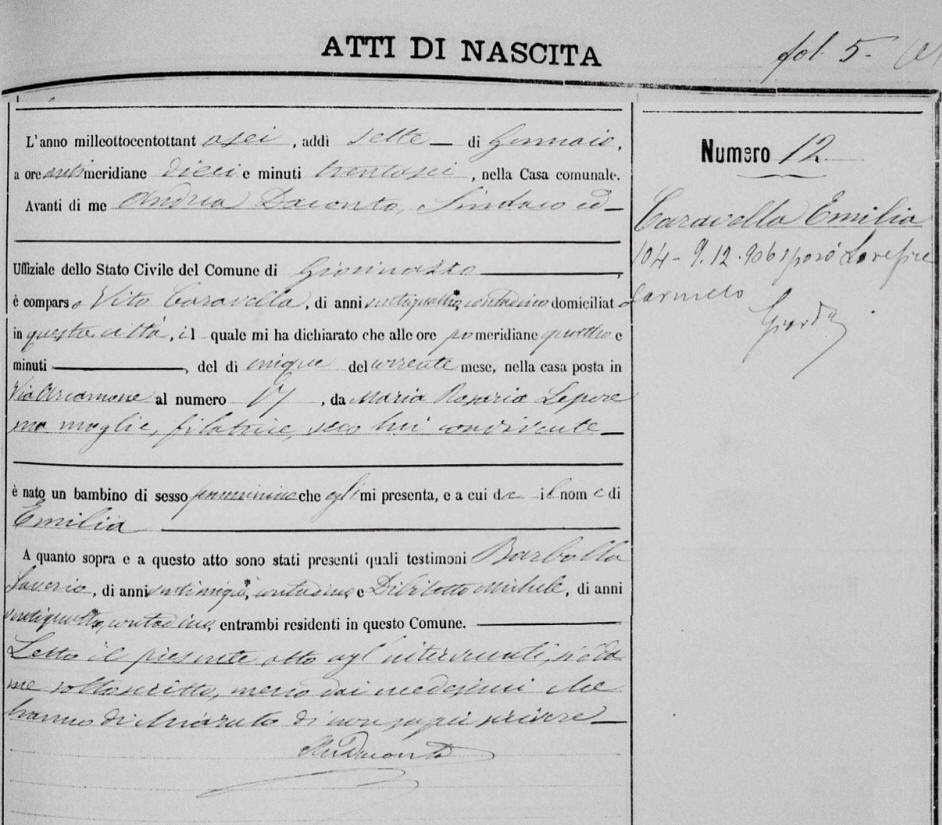 ATTI DI NASCITA
fol. 5.
L'anno milleottocentottant asei, addi sette di Gennaio,
a ore antimeridiane dieci e minuti trentasei, nella Casa comunale.
Avanti di me Andrea Daconto, Sindaco ed
Uffiziale dello Stato Civile del Comune di Giovinazzo
è comparso Vito Caravella, di anni ventiquattro, contadino domiciliato
in questa città, il quale mi ha dichiarato che alle ore pomeridiane quattro e
minuti , del di cinque del corrente mese, nella casa posta in
Via al numero 17, da Maria Rosaria Lepore
sua moglie, filatrice, seco lui convivente
è nato un bambino di sesso femminino che egli mi presenta, e a cui dà il nome di
Emilia
A quanto sopra e a questo atto sono stati presenti quali testimoni
Saverio, di anni contadino e Michele, di anni
ventiquattro, contadino, entrambi residenti in questo Comune.
Letto il presente atto agl'intervenuti, si è da
me sottoscritto, meno dai medesimi che
hanno dichiarato di non saper scrivere
Daconto
Numero 12
Caravella Emilia
104 - 9.12.906 sposò
Carmelo